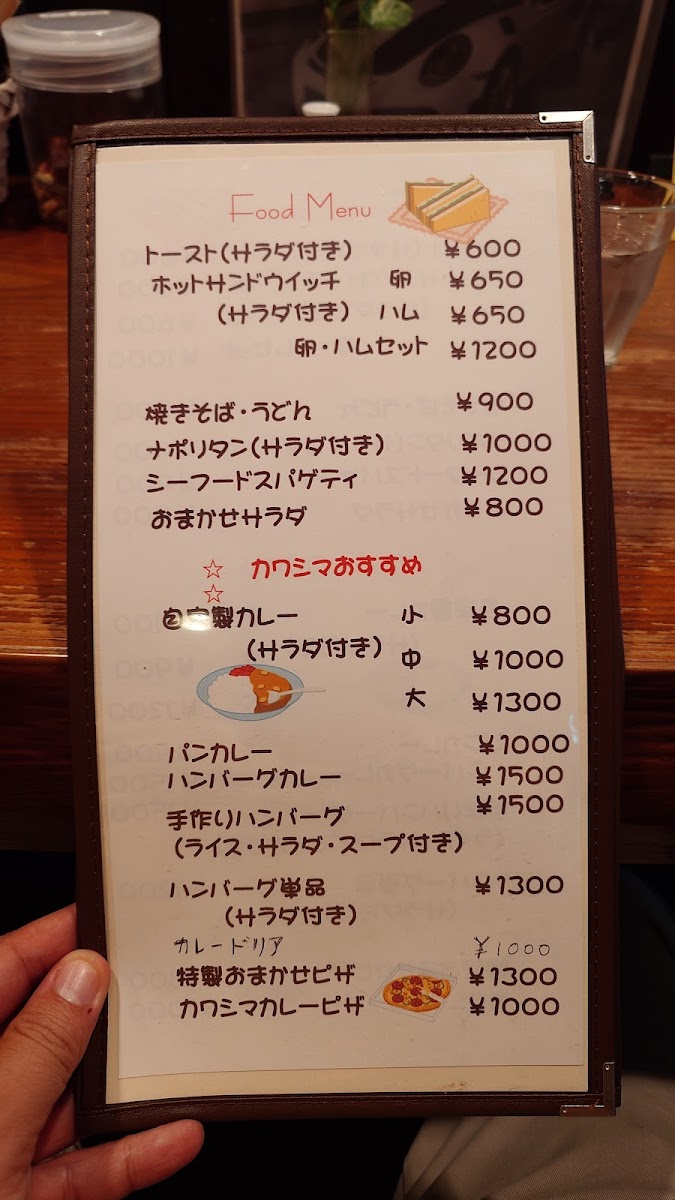 Food Menu
トースト(サラダ付き) ¥600
ホットサンドウイッチ 卵 ¥650
(サラダ付き) ハム ¥650
卵・ハムセット ¥1200
焼きそば・うどん ¥900
ナポリタン(サラダ付き) ¥1000
シーフードスパゲティ ¥1200
おまかせサラダ ¥800
☆ カワシマおすすめ
☆
自家製カレー 小 ¥800
(サラダ付き) 中 ¥1000
大 ¥1300
パンカレー ¥1000
ハンバーグカレー ¥1500
手作りハンバーグ ¥1500
(ライス・サラダ・スープ付き)
ハンバーグ単品 ¥1300
(サラダ付き)
カレードリア ¥1000
特製おまかせピザ ¥1300
カワシマカレーピザ ¥1000